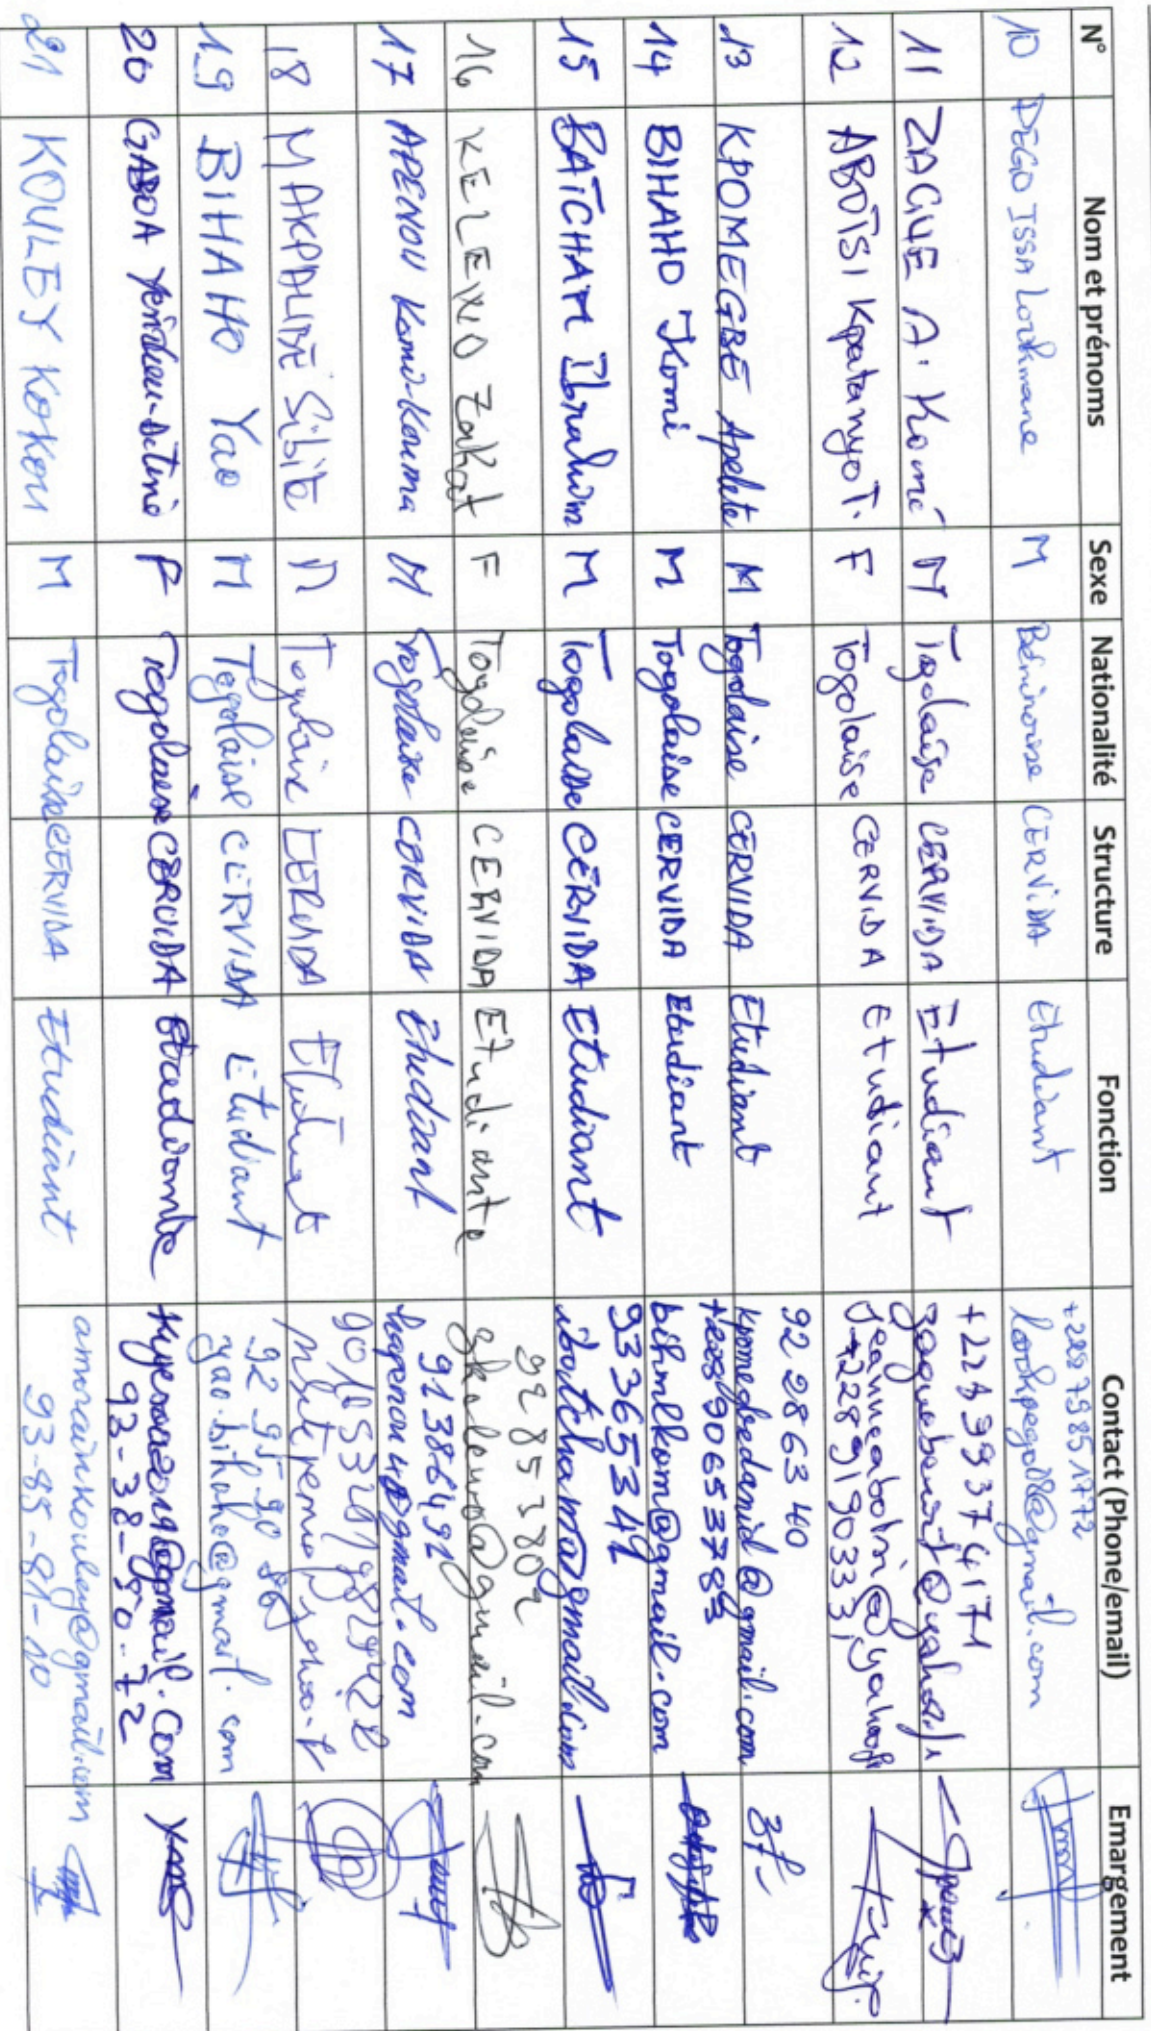 N° Nom et prénoms Sexe Nationalité Structure Fonction Contact (Phone/email) Emargement
10 PEGO ISSA Loukmane M Béninoise CERVIDA Etudiant +228 79851772
loukpego18@gmail.com
11 ZAGUE A. Komé M Togolaise CERVIDA Etudiant +228 99374171
12 ABOTSI Kpatanyo T. F Togolaise CERVIDA Etudiant
+22891903331
13 KPOMEGBE Apelete M Togolaise CERVIDA Etudiant 92286340
kpomegbedavid@gmail.com
14 BIHAHO Komi M Togolaise CERVIDA Etudiant +22890653783
bihmlkom@gmail.com
15 BATCHAM Ibrahim M Togolaise CERVIDA Etudiant 93365349
ibatcham@gmail.com
16 KELEWO Zakat F Togolaise CERVIDA Etudiante 92853802
17 APENOU Komi-Kouma M Togolaise CERVIDA Etudiant 91386492
18 MAKPALIBE Sibite M Togolaise CERVIDA Etudiant
19 BIHAHO Yao M Togolaise CERVIDA Etudiant
yao.bihaho@gmail.com
20 GABOA F Togolaise CERVIDA Etudiante
93-38-50-72
21 KOULEY Kokou M Togolaise CERVIDA Etudiant amorainkouley@gmail.com
93-85-81-10